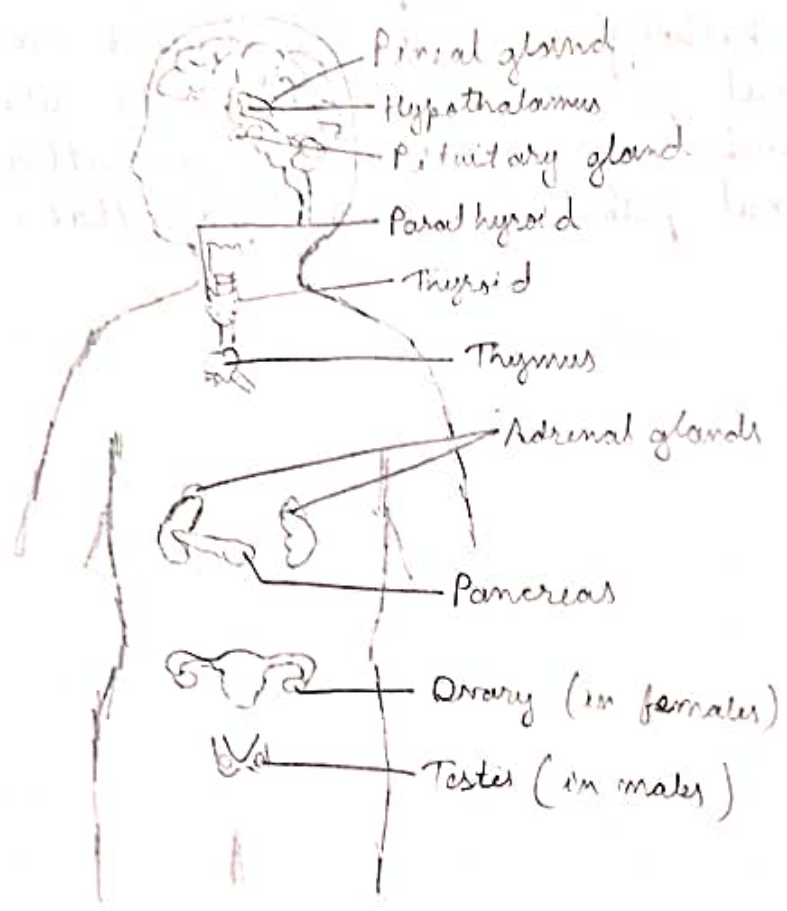 Pineal gland
Hypothalamus
Pituitary gland
Parathyroid
Thyroid
Thymus
Adrenal glands
Pancreas
Ovary (in females)
Testis (in males)